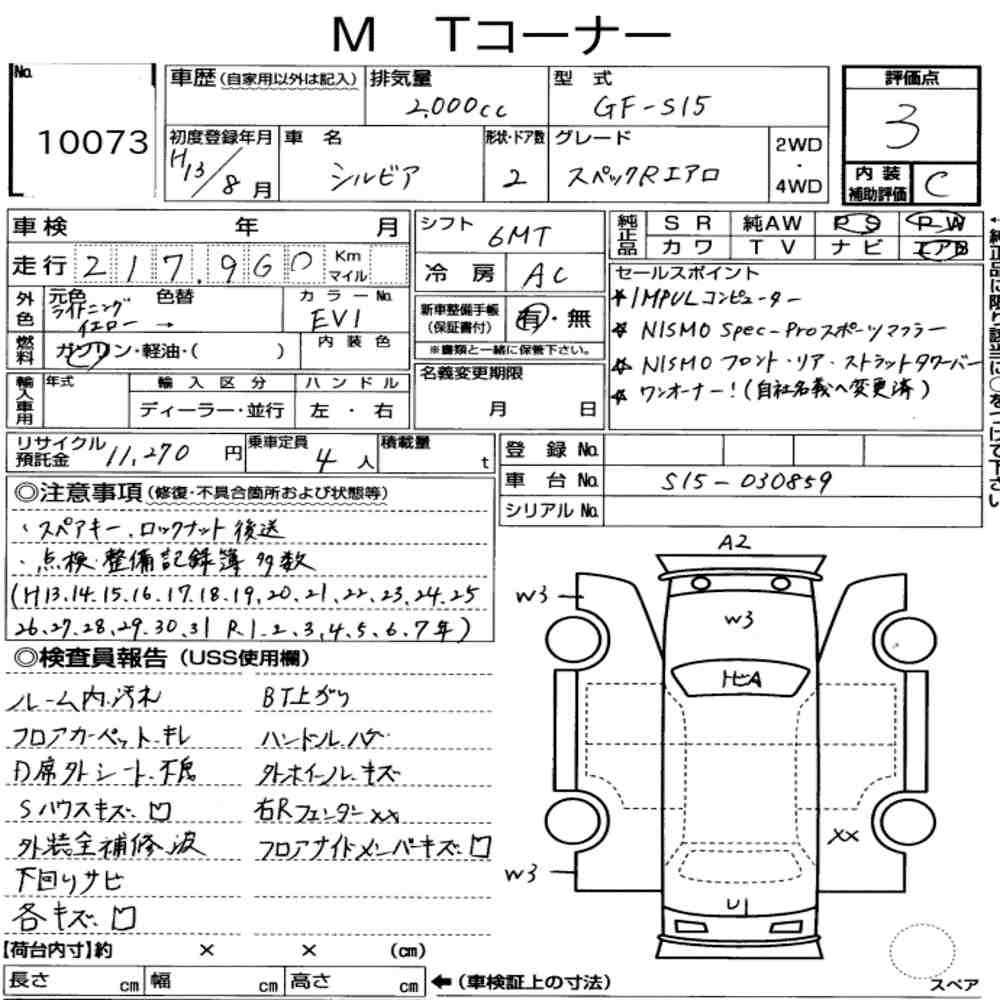 M Tコーナー
No. 10073
車歴(自家用以外は記入)
排気量 2,000cc
型式 GF-S15
評価点 3
初度登録年月 H13/8月
車名 シルビア
形状・ドア数 2
グレード スペックRエアロ
2WD・4WD
内装補助評価 C
車検 年 月
走行 217,960 Km マイル
シフト 6MT
冷房 AC
純正品 SR 純AW PS PW
カワ TV ナビ エアB
外色 元色 ライトニングイエロー → 色替
カラーNo. EV1
内装色
燃料 ガソリン・軽油・( )
新車整備手帳(保証書付) 有・無
※書類と一緒に保管下さい。
セールスポイント
☆ IMPULコンピューター
☆ NISMO Spec-Proスポーツマフラー
☆ NISMO フロント・リア・ストラットタワーバー
☆ ワンオーナー!(自社名義へ変更済)
輸入車用 年式 輸入区分 ハンドル
ディーラー・並行 左・右
名義変更期限 月 日
リサイクル預託金 11,270円
乗車定員 4人
積載量 t
登録No.
車台No. S15-030859
シリアルNo.
◎注意事項(修復・不具合箇所および状態等)
・スペアキー、ロックナット後送
・点検・整備記録簿多数
(H13.14.15.16.17.18.19.20.21.22.23.24.25
26.27.28.29.30.31 R1.2.3.4.5.6.7年)
◎検査員報告(USS使用欄)
ルーム内.汚れ BT上がり
フロアカーペット.キレ ハンドル.ハゲ
D席外シート.不良 外ホイール.キズ
Sハウスキズ.凹 右Rフェンダーxx
外装全補修.波 フロアサイドメンバーキズ.凹
下回りサビ
各キズ.凹
A2
W3
W3
トビA
XX
W3
U
【荷台内寸】約 × × (cm)
長さ cm 幅 cm 高さ cm ←(車検証上の寸法)
スペア
←純正品に限り該当に○をつけて下さい